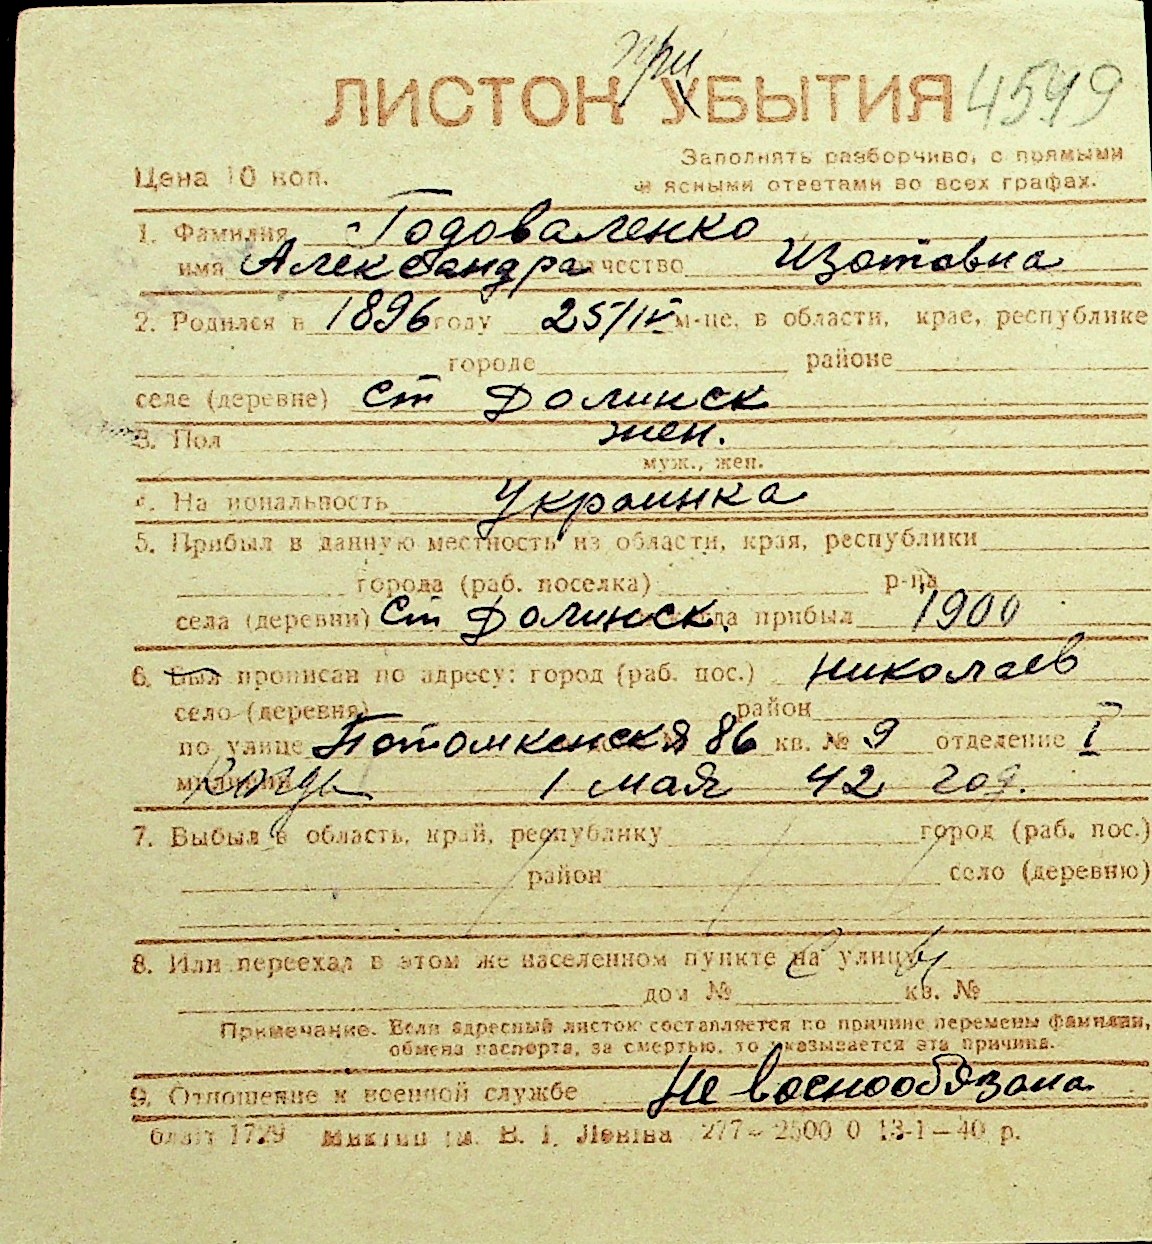 при
ЛИСТОК УБЫТИЯ 4549
Цена 10 коп.
Заполнять разборчиво, с прямыми
и ясными ответами во всех графах.
1. Фамилия Годоваленко
имя Александра отчество Изотовна
2. Родился в 1896 году 25/IV м-це, в области, крае, республике
городе районе
селе (деревне) ст Долинск
3. Пол жен.
муж., жен.
4. Национальность Украинка
5. Прибыл в данную местность из области, края, республики
города (раб. поселка) р-на
села (деревни) ст Долинск. когда прибыл 1900
6. Был прописан по адресу: город (раб. пос.) Николаев
село (деревня) район
по улице Потомкенская 86 кв. № 9 отделение I
милиции 1 мая 42 год.
7. Выбыл в область, край, республику город (раб. пос.)
район село (деревню)
8. Или переехал в этом же населенном пункте на улицу
дом № кв. №
Примечание. Если адресный листок составляется по причине перемены фамилии,
обмена паспорта, за смертью, то указывается эта причина.
9. Отношение к военной службе Не военнообязана
бланк 1729 В. І. Леніна 277—2500 0 13-1—40 р.